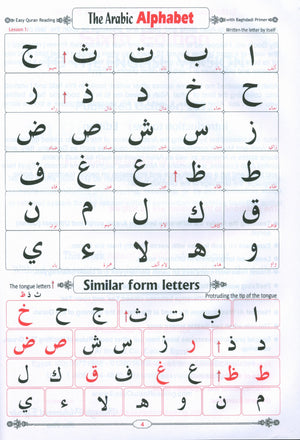 Easy Quran Reading The Arabic Alphabet with Baghdadi Primer
Lesson 1: Written the letter by itself
ا ب ت ث ج
ح خ د ذ ر
ز س ش ص ض
ط ظ ع غ ف
ق ك ل م ن
و ه لا ء ي
The tongue letters Similar form letters
ث ذ ظ Protruding the tip of the tongue
ا ب ت ث ج ح خ
د ذ ر ز س ش ص ض
ط ظ ع غ ف ق ك ل
م ن و ه لا ء ي
4